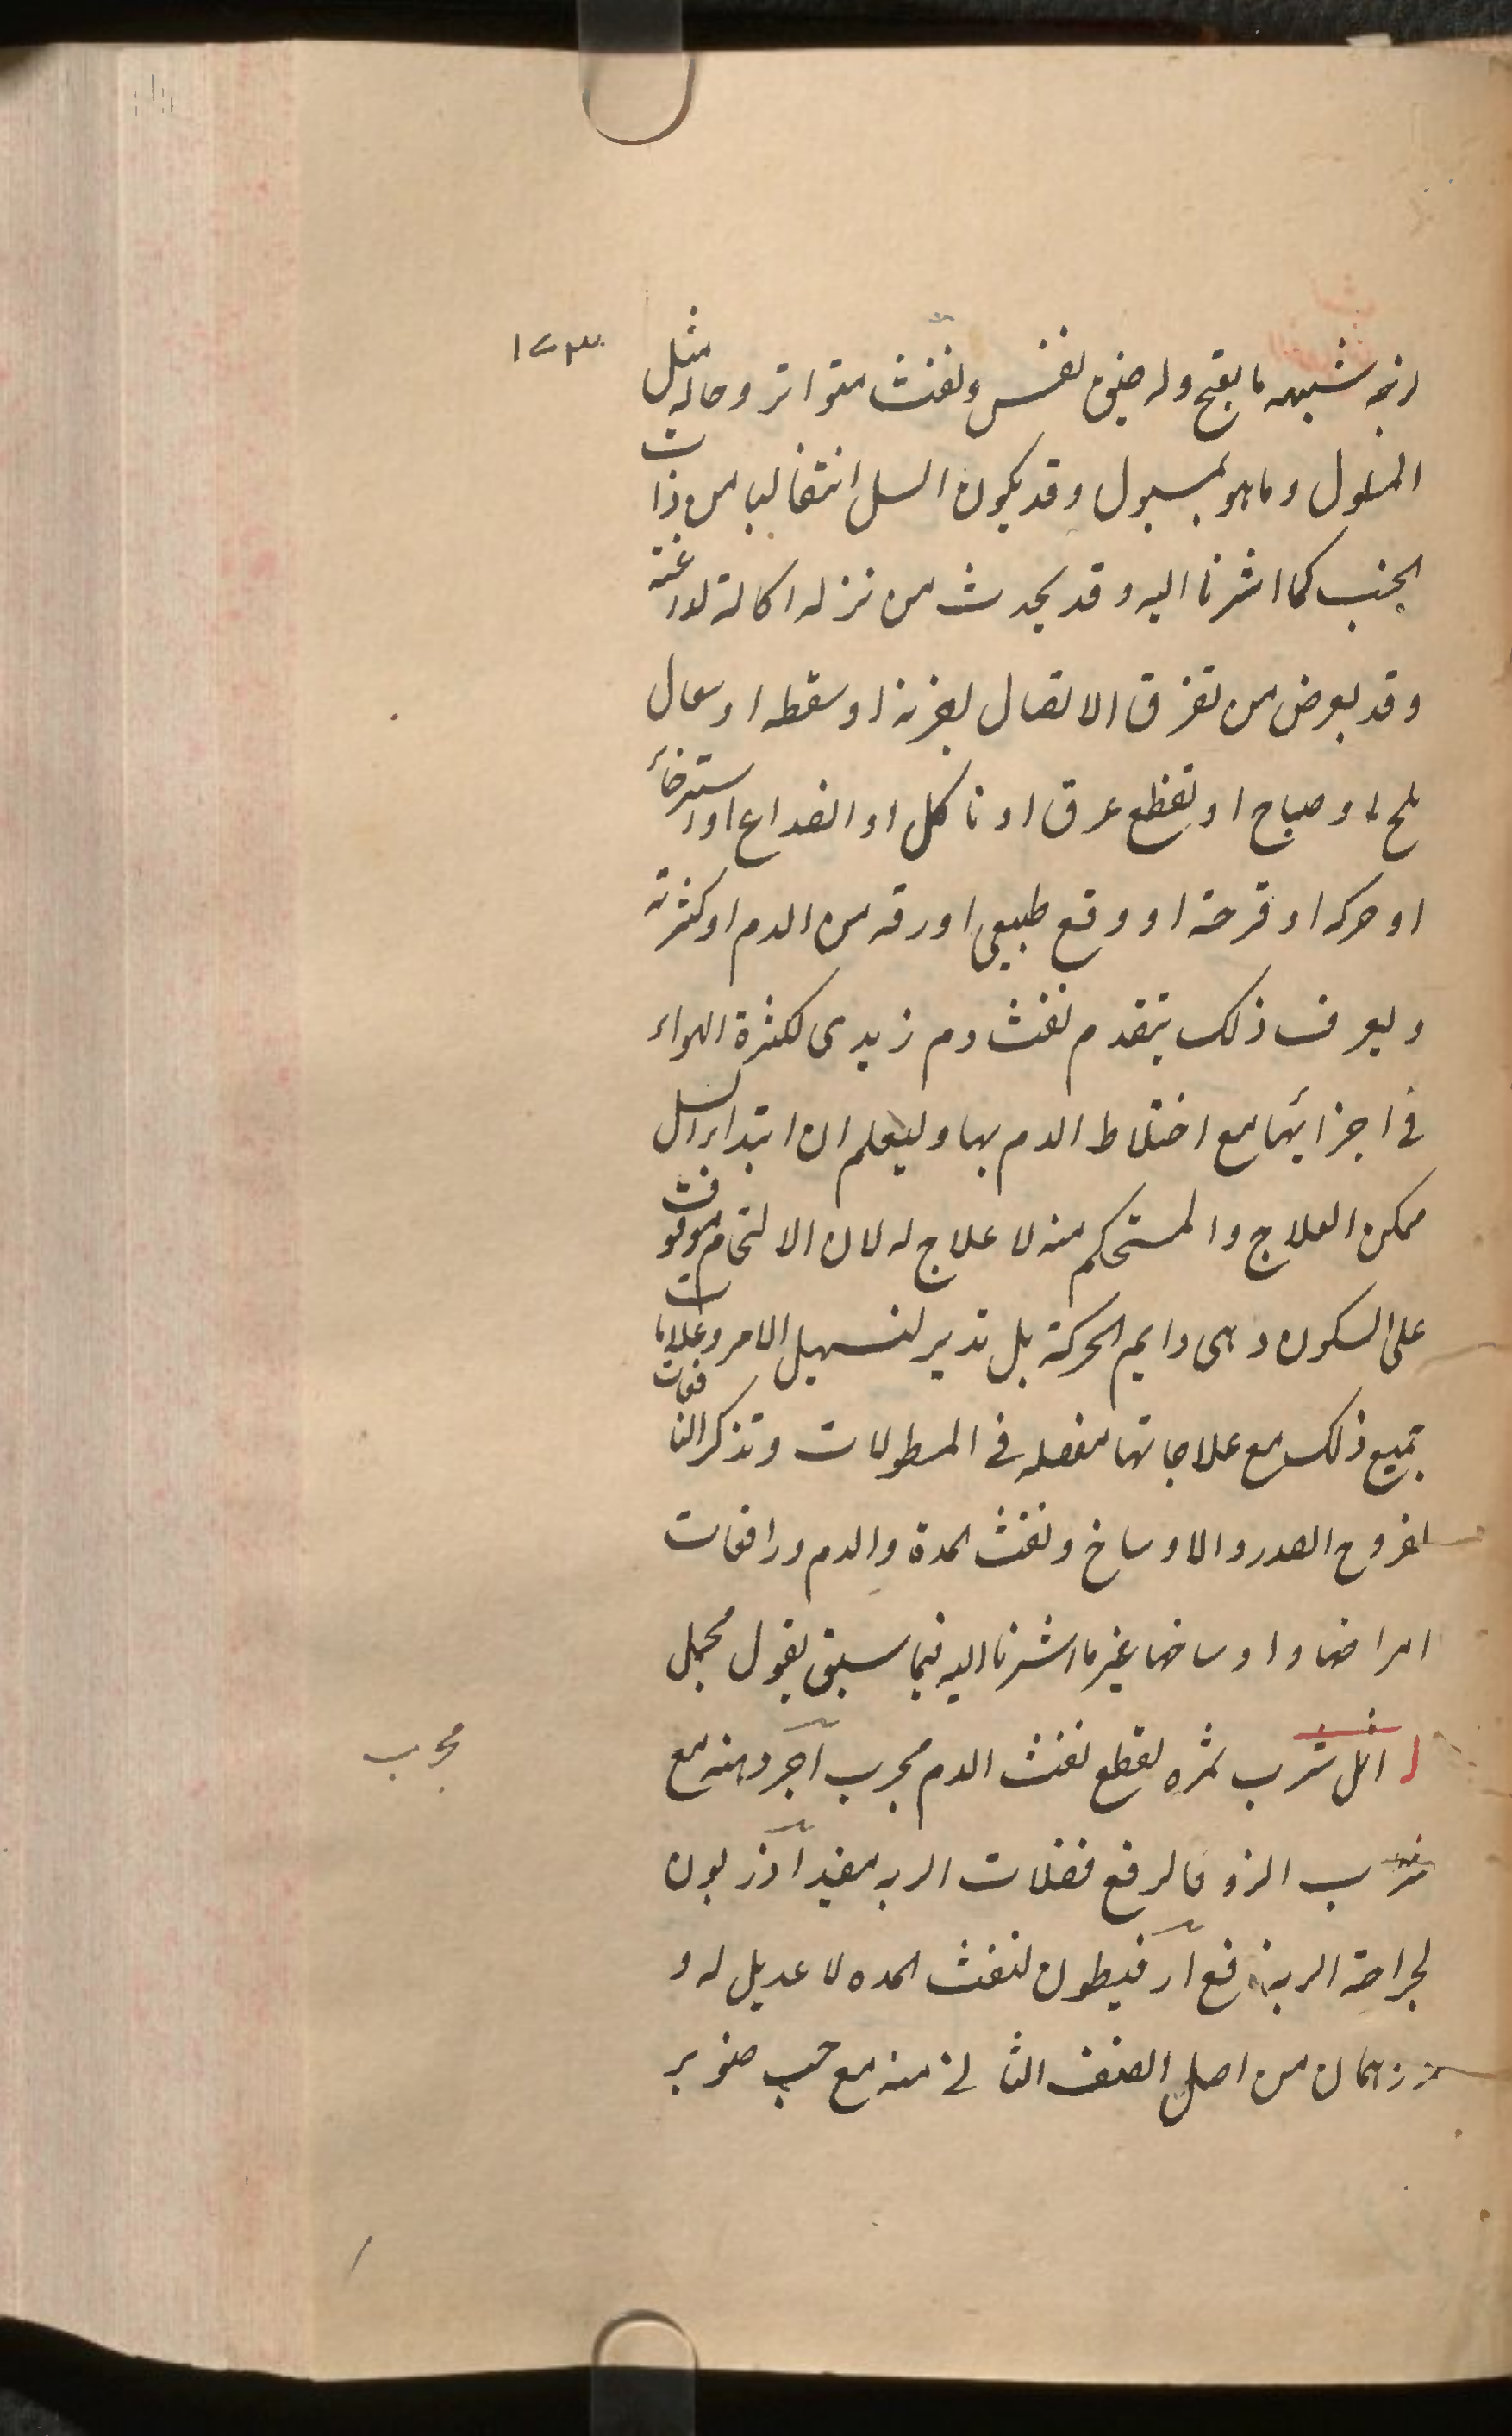 ١٧٣
لزجه شبيهه بالقيح وله ضيق نفس ونفث متواتر وحاله مثل
المسلول وما هو بمسلول وقد يكون السل انتقاليا من ذات
الجنب كما اشرنا اليه وقد يحدث من نزله اكالة لذاعة
وقد يعرض من تفرق الاتصال لضربة او سقطه او سعال
ملح او صياح او تقطع عرق او تاكل او انصداع او استرخاء
او حركه او قرحة او وقع طبيعى او رقه من الدم او كثرته
ويعرف ذلك بتقدم نفث دم زبدى لكثرة الهواء
فى اجزائها مع اختلاط الدم بها وليعلم ان ابتداء السل
ممكن العلاج والمستحكم منه لا علاج له لان الالتحام موقوف
على السكون وهى دايم الحركة بل تدبير لتسهيل الامر وعلامات
جميع ذلك مع علاجاتها مفصله فى المطولات وتذكر النافعات
لقروح الصدر والاوساخ ونفث المدة والدم ودافعات
امراضها واوساخها غير ما اشرنا اليه فيما سبق بقول مجمل
ا اثل شرب ثمره لقطع نفث الدم مجرب آخر منه مع
مجرب
شراب الزوفا لرفع فضلات الريه مفيد آذربون
لجراحة الريه نافع آرفيطون لنفث المده لا عديل له و
درهمان من اصل الصنف الثانى منه مع حب صنوبر